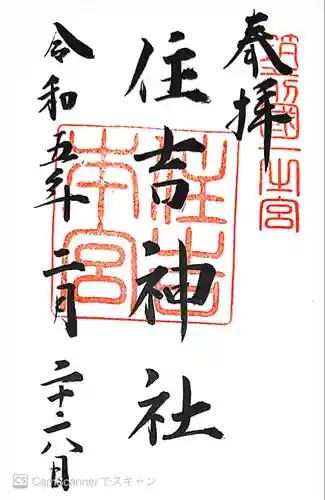 奉拝
筑前國一之宮
住吉神社
住吉本宮
令和五年二月二十六日
CS CamScannerでスキャン